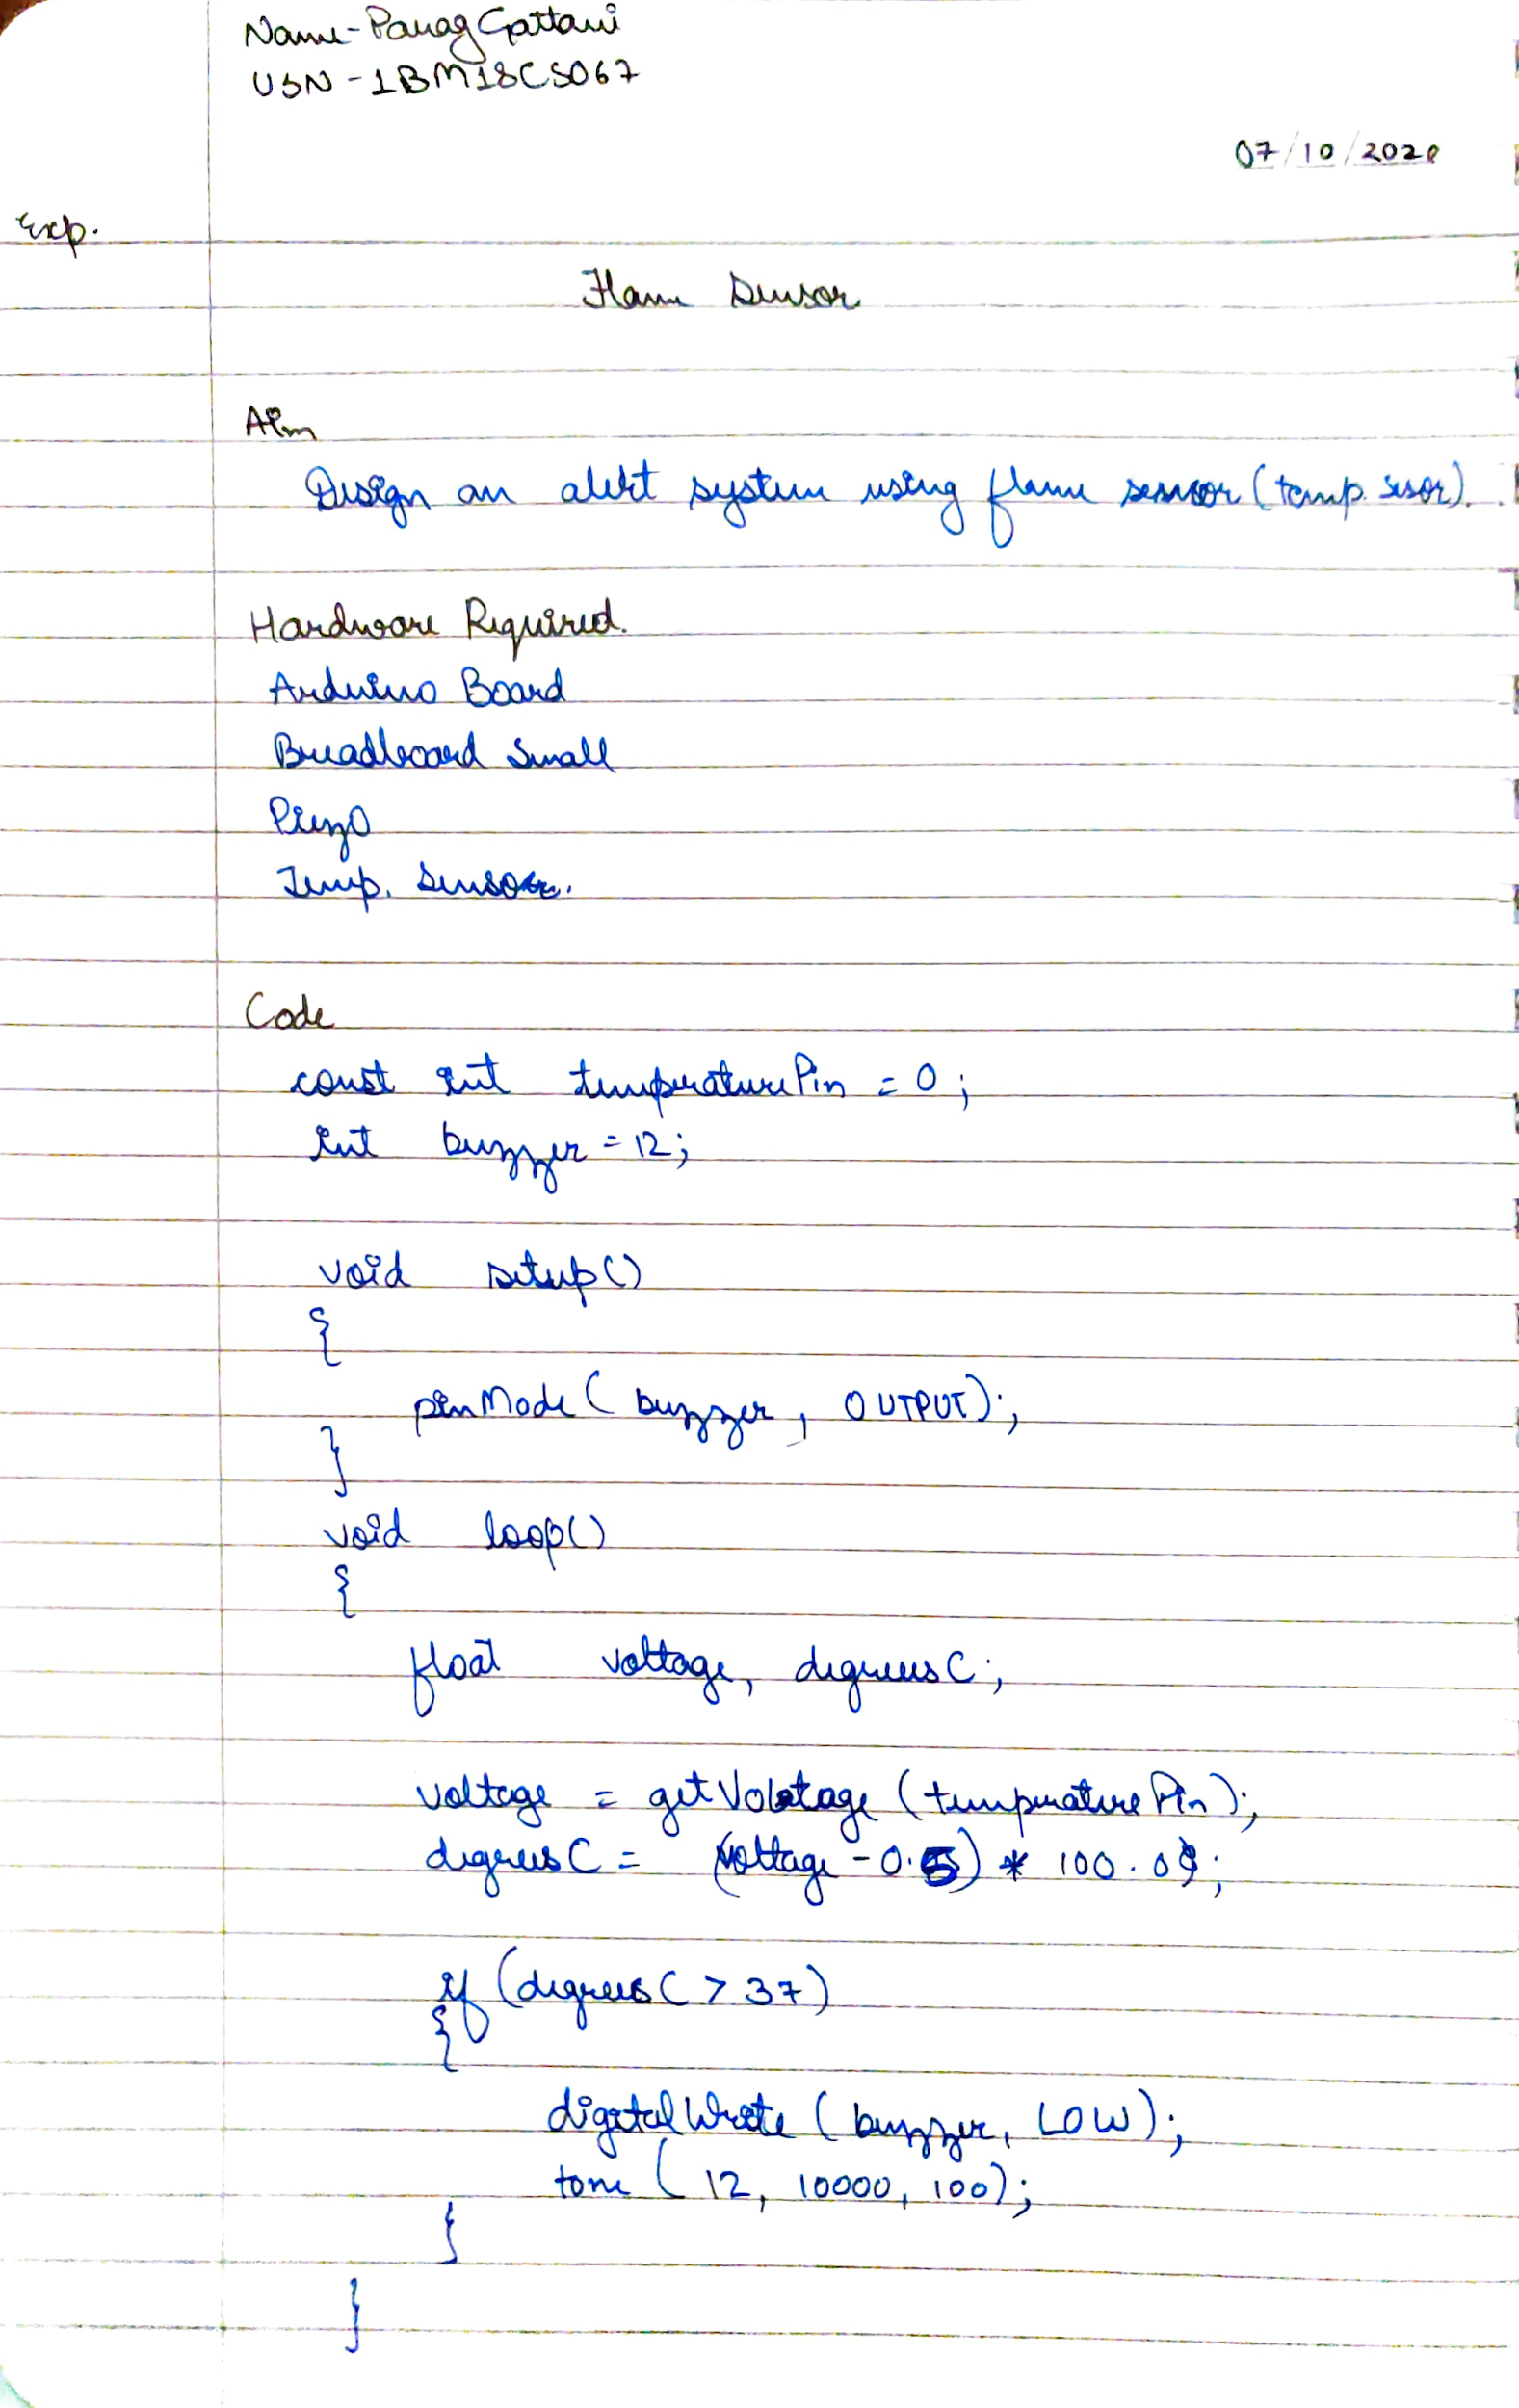 Name- Parag Gattani
USN - 1BM18CS067
07/10/2020
Exp.
Flame Sensor
Aim
Design an alert system using flame sensor (temp. sesor).
Hardware Required.
Arduino Board
Breadboard Small
Piezo
Temp. Sensor.
Code
const int temperaturePin = 0;
int buzzer = 12;
void setup()
{
pinMode( buzzer, OUTPUT);
}
void loop()
{
float voltage, degreesC;
voltage = getVoltage (temperaturePin);
degreesC = (voltage - 0.5) * 100.0;
if (degreesC > 37)
{
digitalWrite ( buzzer, LOW);
tone ( 12, 10000, 100);
}
}